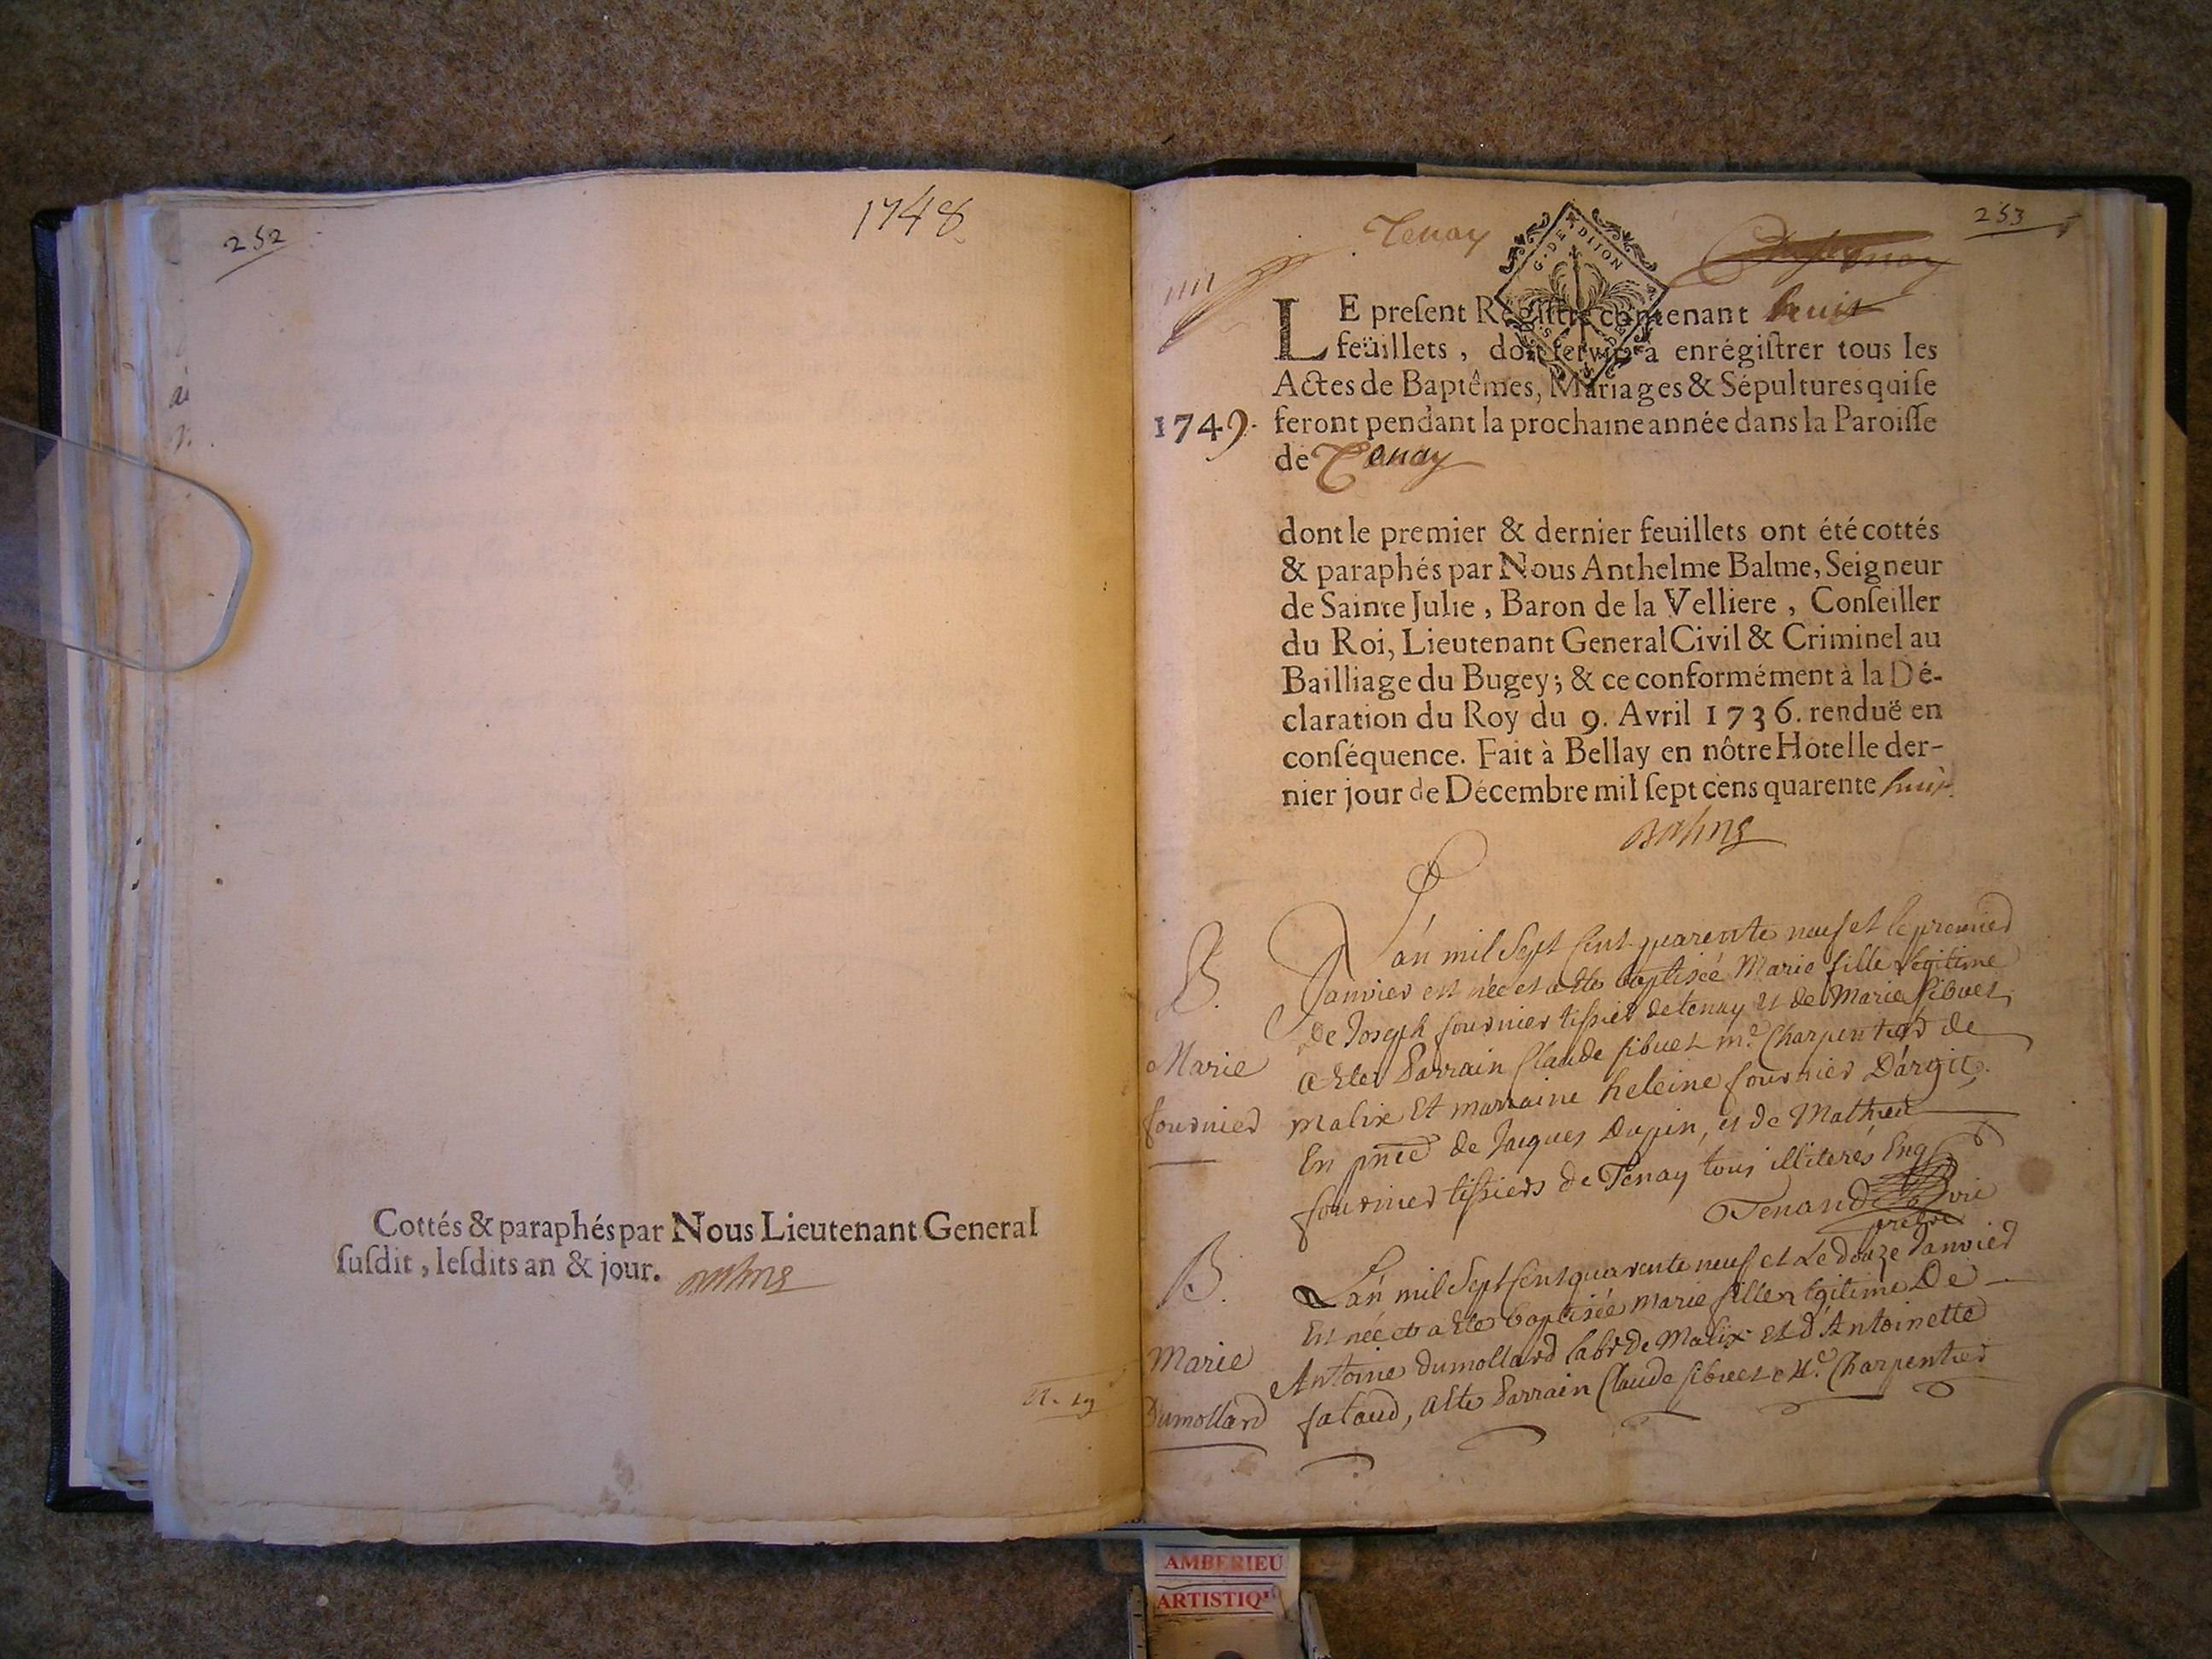 252
1748
Cottés & paraphés par Nous Lieutenant General
suſdit, leſdits an & jour.
253
Tenay
G. DE DIJON
LE preſent Régiſtre contenant huit
feüillets, doit ſervir à enrégiſtrer tous les
Actes de Baptêmes, Mariages & Sépultures qui ſe
1749. feront pendant la prochaine année dans la Paroiſſe
de Tenay
dont le premier & dernier feuillets ont été cottés
& paraphés par Nous Anthelme Balme, Seigneur
de Sainte Julie, Baron de la Velliere, Conſeiller
du Roi, Lieutenant General Civil & Criminel au
Bailliage du Bugey; & ce conformément à la Dé-
claration du Roy du 9. Avril 1736. renduë en
conſéquence. Fait à Bellay en nôtre Hôtel le der-
nier jour de Décembre mil ſept cens quarente huit
Balme
B.
Marie
fournier
L'an mil Sept Cent quarente neuf et le premier
Janvier est née et a ete baptiseé Marie fille legitime
de Joseph fournier tissier de tenay et de Marie Sibuet
a ete Parrain Claude sibuet me. Charpentier de
Malix Et marraine heleine fournier D'argit,
En pnce de Jacques Dupin, et de Mathieu
fournier tissiers de Tenay tous illiterés Enq
Tenand vic
prêtre
B.
Marie
Dumollard
L'an mil Sept Cent quarente neuf et Le douze Janvier
Est née et a ete baptisée Marie fille legitime De
Antoine Dumollard labr de Malix et d'Antoinette
fataud, a ete Parrain Claude sibuet Me. Charpentier
AMBERIEU
ARTISTIQ